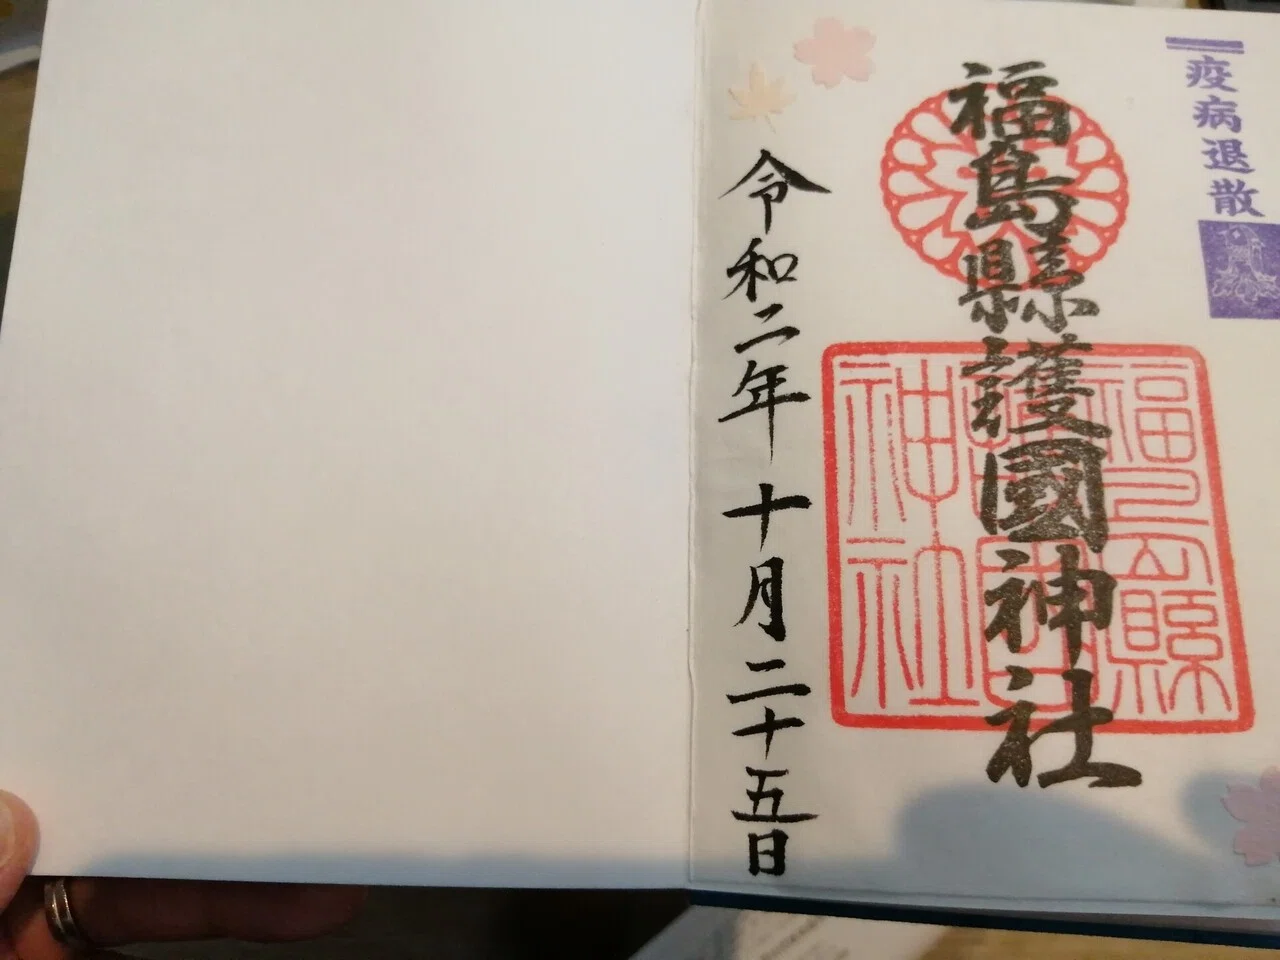 疫病退散
福島縣護國神社
福島縣護國神社
令和二年十月二十五日